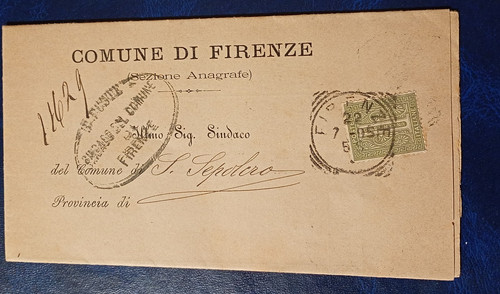 COMUNE DI FIRENZE
(Sezione Anagrafe)
SINDACO DEL COMUNE
FIRENZE
Illmo Sig. Sindaco
del Comune di S. Sepolcro
Provincia di
FIRENZ
22